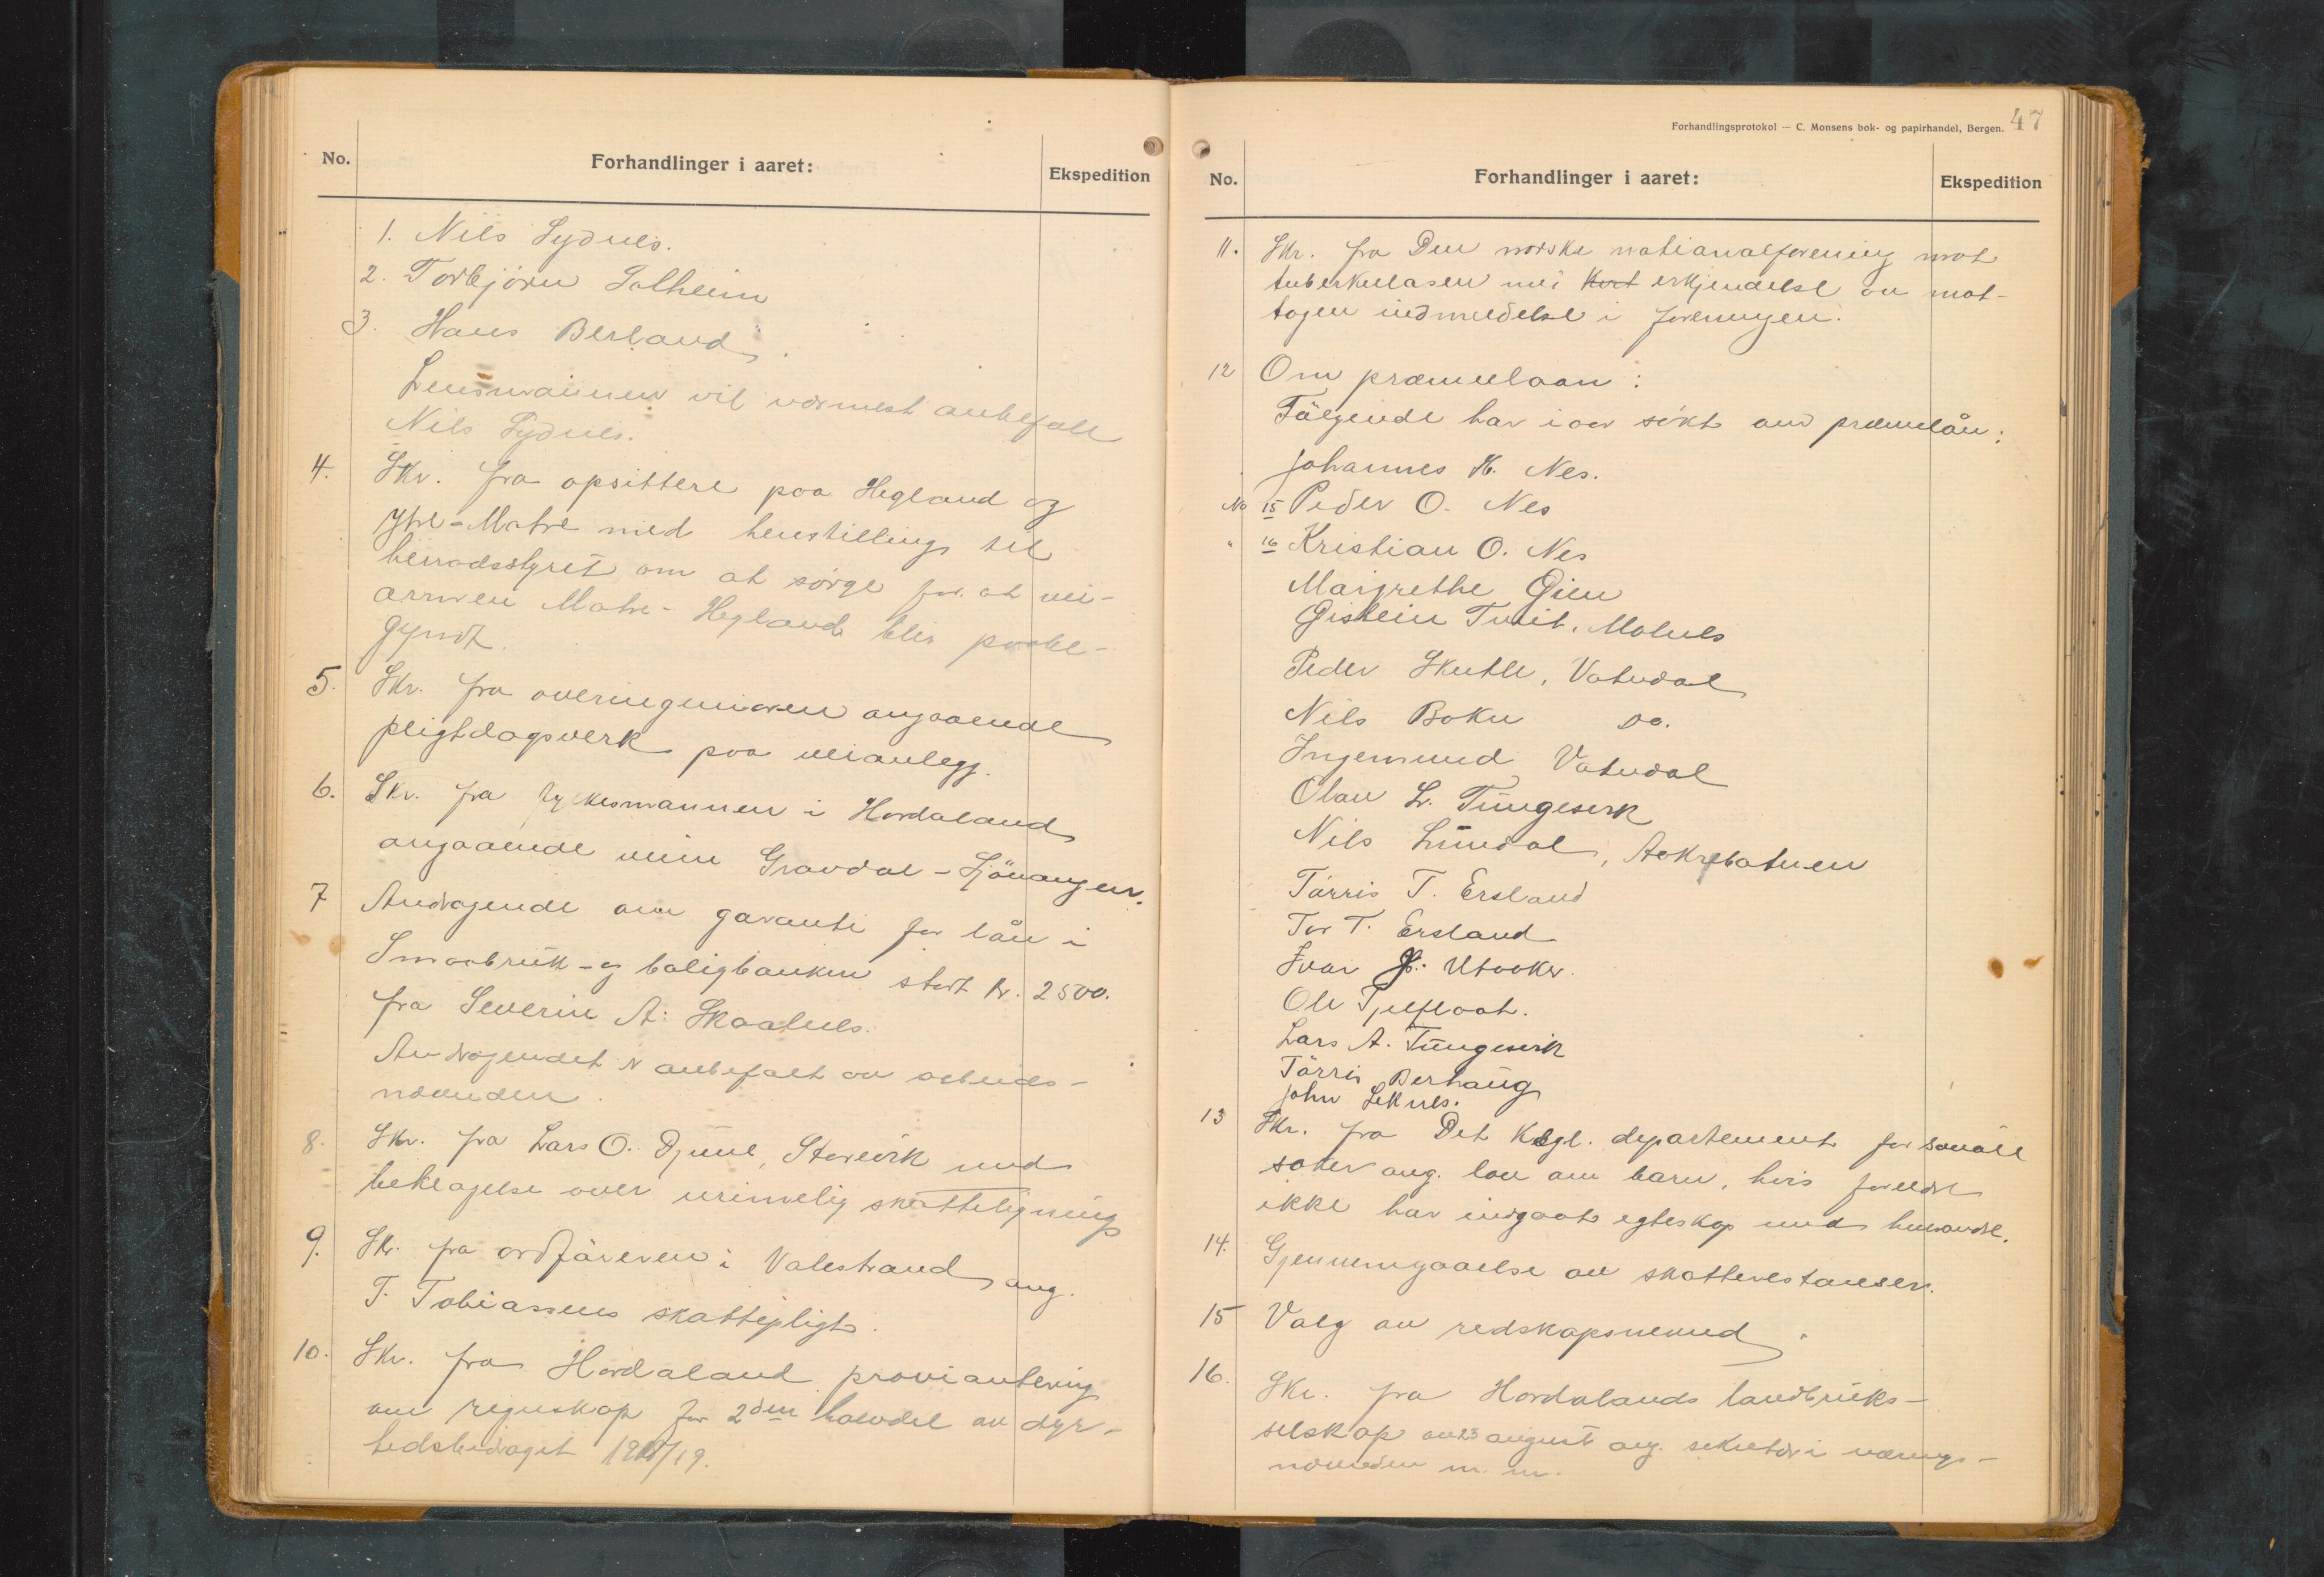 No.
Forhandlinger i aaret:
Ekspedition
1. Nils Sydnes.
2. Torbjörn Solheim
3. Hans Berland.
Lensmannen vil nærmest anbefale
Nils Sydnes.
4. Skr. fra opsittere paa Hegland og
Ytre-Matre med henstilling til
herradsstyret om at sörge for at vei-
armen Matre-Hegland blir paabe-
gyndt.
5. Skr. fra overingeniøren angaaende
pligtdagsverk paa veianlegg.
6. Skr. fra fylkesmannen i Hordaland
angaaende veien Gravdal-Fjönanger.
7 Andragende om garanti for lån i
Smaabruk-og boligbanken stort kr. 2500.
fra Severin A. Skaatnes.
Andragendet er anbefalt av arbeids-
nævnden.
8. Skr. fra Lars O. Djuve, Storevik med
beklagelse over urimelig skatteligning
9. Skr. fra ordföreren i Valestrand ang.
T. Tobiassens skattepligt.
10. Skr. fra Hordaland proviantering
om regnskap for 2den halvdel av dyr-
tidsbidraget 1918/19.
Forhandlingsprotokol — C. Monsens bok- og papirhandel, Bergen. 47
No.
Forhandlinger i aaret:
Ekspedition
11. Skr. fra Den norske nationalforening mot
tuberkulosen med kort erkjendelse av mot-
tagen indmeldelse i foreningen.
12 Om præmielaan:
Fölgende har i aar sökt om præmielån:
Johannes K. Nes.
No 15 Peder O. Nes
" 16 Kristian O. Nes
Margrethe Øien
Øistein Tveit, Molnes
Peder Skutle, Vatndal
Nils Bokn do.
Ingemund Vatndal
Olav L. Tungesvik
Nils Lundal, Aakrebotnen
Törris T. Ersland
Tor T. Ersland
Ivar J. Utaaker.
Ole Tjelflaat.
Lars A. Tungesvik
Törris Berhaug
John Seknes.
13 Skr. fra Det Kgl. departement for sociale
saker ang. lov om barn, hvis foreldre
ikke har indgaat egteskap med hverandre.
14. Gjennemgaaelse av skatterestanser.
15 Valg av redskapsnemnd.
16. Skr. fra Hordalands landbruks-
selskap av 23 august ang. sekretær i nærings-
nævnden m. m.